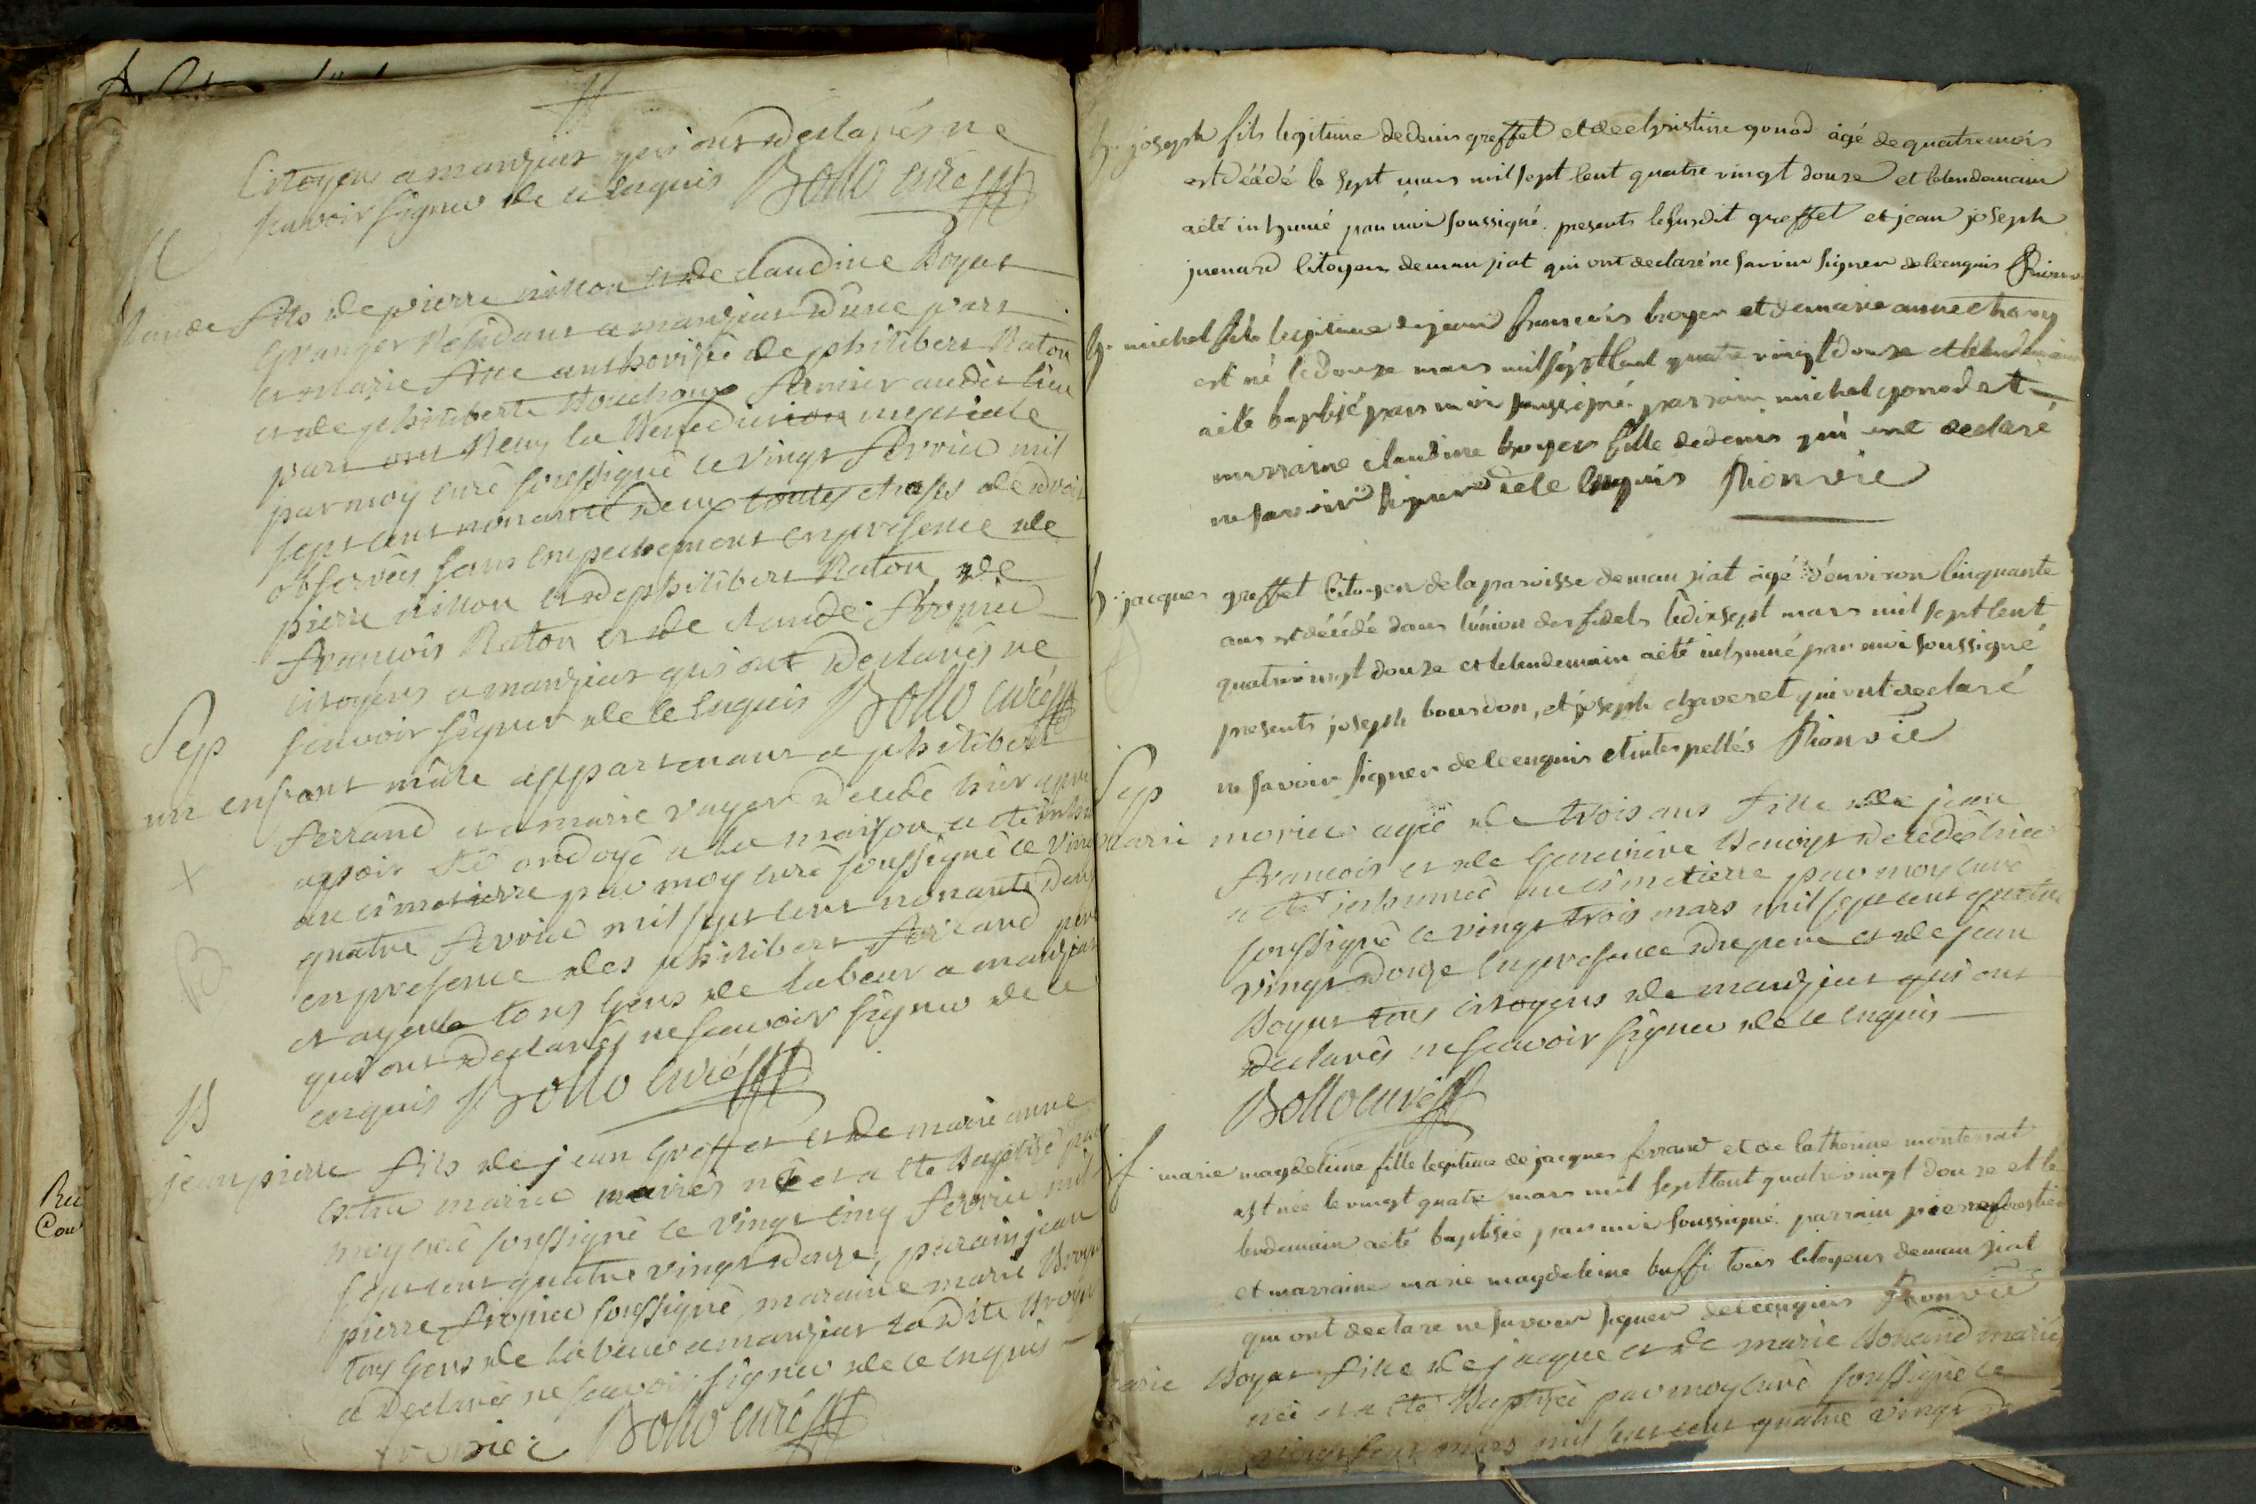 Citoyens a manziat qui ont declarés ne
scavoir signer de ce enquis Bollo curé
M
Claude fils de pierre nillon et de claudine Boyat
Granger Residant a manziat d'une part
et marie fille authorisée de philibert Raton
et de philiberte Mouchoux fermier audit lieu
part ont Reçu la Benediction nuptiale
par moy curé soussigné ce vingt fevrier mil
sept cent nonante deux toutes choses de droit
observées sans empechement en presence de
pierre nillon et de philibert Raton de
francois Raton et de claude
citoyens a manziat qui ont declarés ne
scavoir signer de ce enquis Bollo curé
Sep
un enfant mâle appartenant a philibert
ferrand et a marie voyer decedé hier apres
avoir été ondoyé a la maison a été inhu
au cimetierre par moy curé soussigné ce vingt
quatre fevrier mil sept cent nonante deux
en presence des philibert ferrand pere
et ayeul tous Gens de labeur a manziat
qui ont declarés ne scavoir signer de ce
enquis Bollo curé
B
jean pierre fils de jean Greffet et de marie anne
mariés né et a été baptisé par
moy curé soussigné ce vingt cinq fevrier mil
sept cent quatre vingt douze, parain jean
pierre soussigné, maraine marie Broyer
tous Gens de labeur a manziat la dite Broyer
a declarée ne scavoir signer de ce enquis
Bollo curé
Rec
Cou
h. joseph fils legitime de denis greffet et de christine gonod âgé de quatre mois
est décédé le sept mars mil sept cent quatre vingt douze et le lendemain
a été inhumé par moi soussigné. presents le susdit greffet et jean joseph
juenard citoyens de manziat qui ont declaré ne savoir signer de ce enquis
h. michel fils legitime de jean francois broyer et de marie anne chary
est né le douze mars mil sept cent quatre vingt douze et le lendemain
a été baptisé par moi soussigné. parrain michel gonod et
marraine claudine broyer fille de denis qui ont declaré
ne savoir signer de ce enquis Rionvie
h. jacques greffet citoyen de la paroisse de manziat âgé d'environ cinquante
ans est décédé dans l'union des fidels le dix sept mars mil sept cent
quatre vingt douze et le lendemain a été inhumé par moi soussigné
presents joseph bourdon, et joseph chaveret qui ont declaré
ne savoir signer de ce enquis et interpellés Rionvie
Sep
marie morier agée de trois ans fille de jean
francois et de Genevieve Benoit decedée hier
a été inhumée au cimetierre par moy curé
soussigné ce vingt trois mars mil sept cent quatre
vingt douze en presence du pere et de jean
Boyat tous citoyens de manziat qui ont
declarés ne scavoir signer de ce enquis
Bollo curé
f. marie magdeleine fille legitime de jacques ferrand et de catherine monterrat
est née le vingt quatre mars mil sept cent quatre vingt douze et le
lendemain a été baptisée par moi soussigné. parrain pierre forestier
et marraine marie magdeleine buffi tous citoyens de manziat
qui ont declare ne savoir signer de ce enquis Rionvie
marie Boyat fille de jacque et de marie Bonand mariés
née et a été Baptisée par moy curé soussigné ce
vingt sept mars mil sept cent quatre vingt